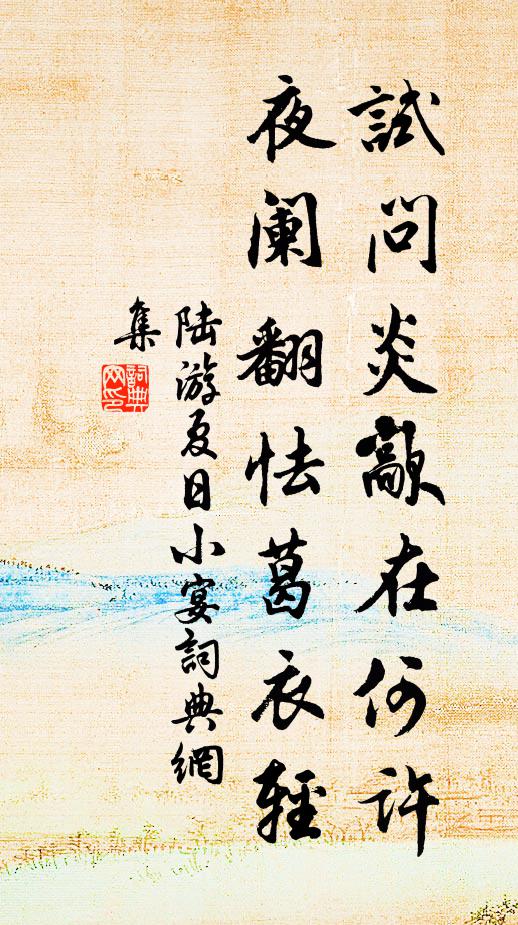 試問炎歊在何許
夜阑翻怯葛衣輕
陆游夏日小宴詞典網
集
詞典
网印